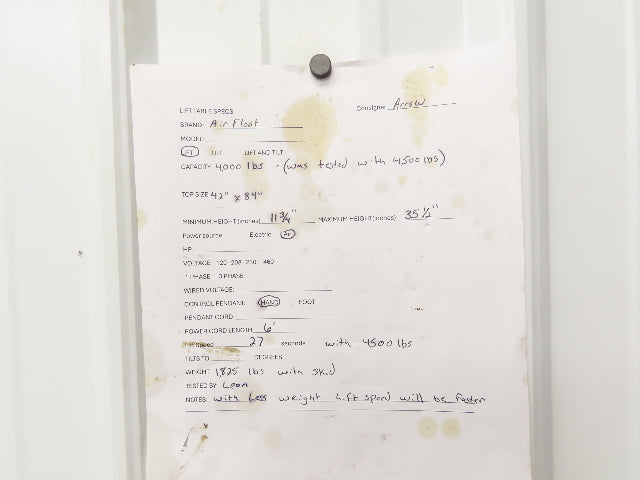 LIFT TABLE SPECS Consigner Arrow
BRAND: Air Float
MODEL:
LIFT TILT LIFT AND TILT
CAPACITY 4,000 lbs - (was tested with 4500 lbs)
TOP SIZE 42" x 84"
MINIMUM HEIGHT (inches) 11 3/4" MAXIMUM HEIGHT (inches) 35 1/2"
Power source Electric Air
HP
VOLTAGE 120 208 230 460
1 PHASE 3 PHASE
WIRED VOLTAGE:
CONTROL PENDANT: HAND FOOT
PENDANT CORD
POWER CORD LENGTH 6'
Speed 27 seconds with 4500 lbs
TILTS TO DEGREES
WEIGHT 1,825 lbs with skid
TESTED BY Leon
NOTES: with Less weight Lift speed will be faster